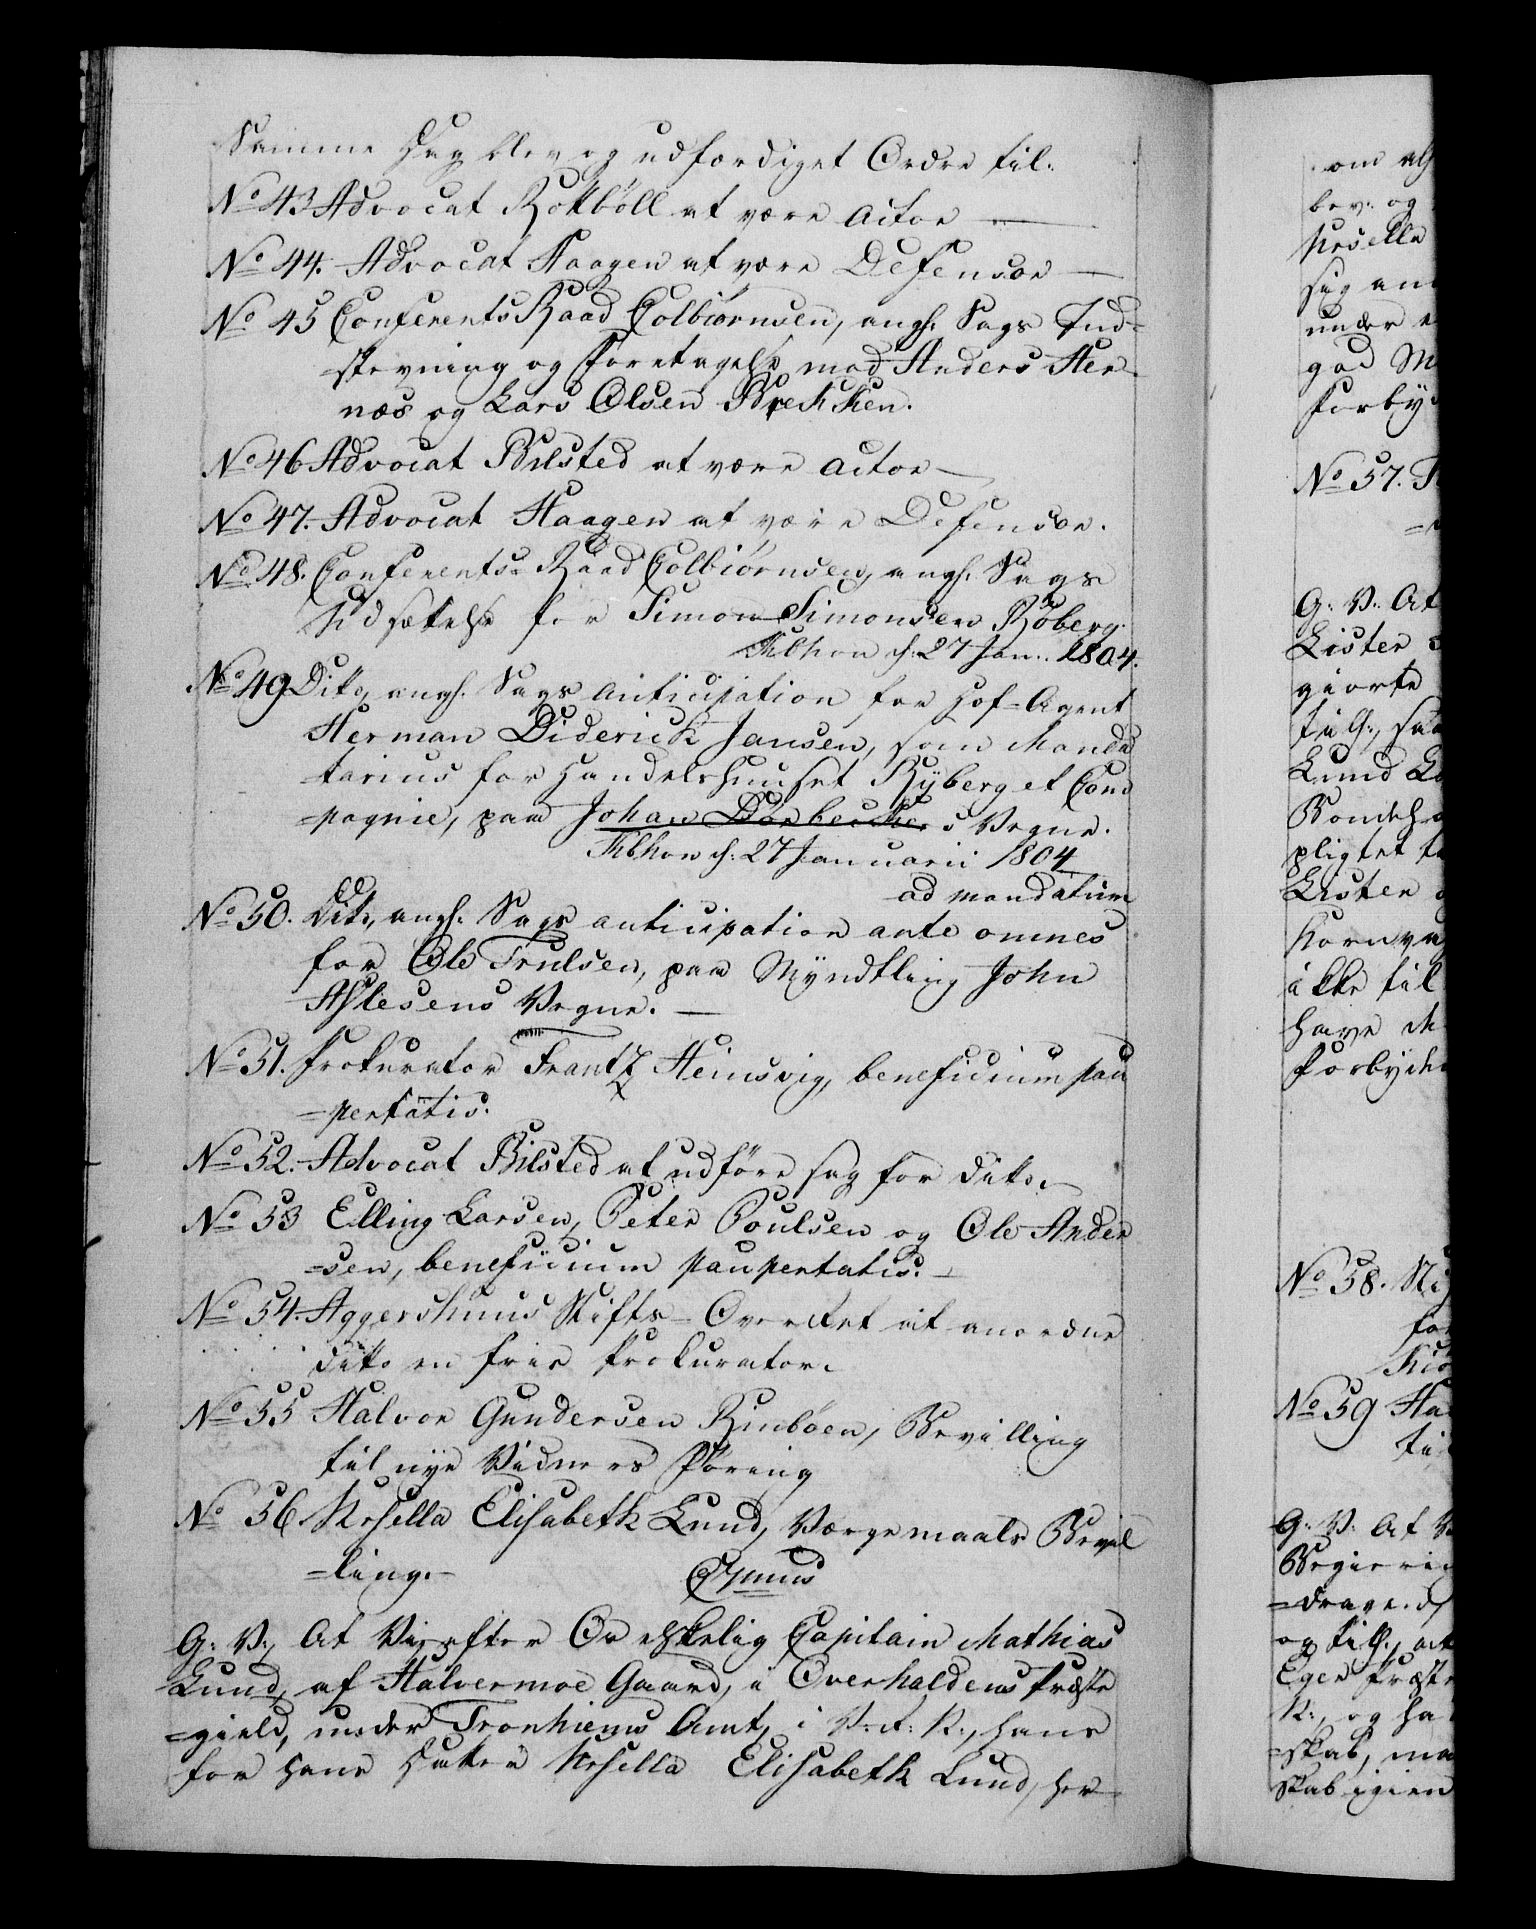 Samme Dag blev og udfærdiget Ordre til.
No 43 Advocat Rottböll at være Actor —
No 44. Advocat Haagen at være Defensor —
No 45 Conferents Raad Colbiørnsen, angl. Sags Ind-
stevning og Foretagelse mod Anders Her-
næs og Lars Olsen Brekken.
No 46 Advocat Bilsted at være Actor —
No 47. Advocat Haagen at være Defensor.
No 48. Conferents-Raad Colbiørnsen, angl. Sags
Udsættelse for Simon Simonsen Röberg.
Kbhavn d: 27 Jan: 1804.
No 49 Dito, angl. Sags anticipation for Hof-Agent
Herman Diderick Jansen, som Manda
tarius for Handelshuuset Rÿberg et Com
-pagnie, paa Johan Dörbeckers Vegne.
Kbhavn d: 27 Januarii 1804
ad mandatum
No 50. Dito, angl. Sags anticipation ante omnes
for Ole Trulsen, paa Mÿndtling John
Aslesens Vegne. —
No 51. Prokurator Frantz Heinsvig, beneficium pau
-pertatis.
No 52. Advocat Bilsted at udföre Sag for dito.
No 53 Elling Larsen, Peter Poulsen og Ole Ander
-sen, beneficium paupertatis. —
No 54. Aggershuus Stifts-Overret at anordne
dito en frie Prokurator.
No 55 Halvor Gundersen Rinböen, Bevilling
til nye Vidners Föring
No 56 Ursella Elisabeth Lund, Værgemaals Bevil
-ling. —
G: V:, At Vi, efter Os elskelig Capitain Mathias
Lund, af Halvermoe Gaard, i Overhaldens Præste
-gield, under Tronhiems Amt, i V. R: N:, hans
for hans Datter Ursella Elisabeth Lund, her
om alf
bev: og
Ursella
sig an
under
god M
forby
No 57.
G: V: At
Lister
giorte
till:, saa
Lund
Bondeh
pligtet
Lister
Kornva
ikke til
have
forbyde
No 58.
No 59
G: V: At
Regieri
-drage.
og till.
Eger Præste
N:, og ha
-skab, ma
skab igien